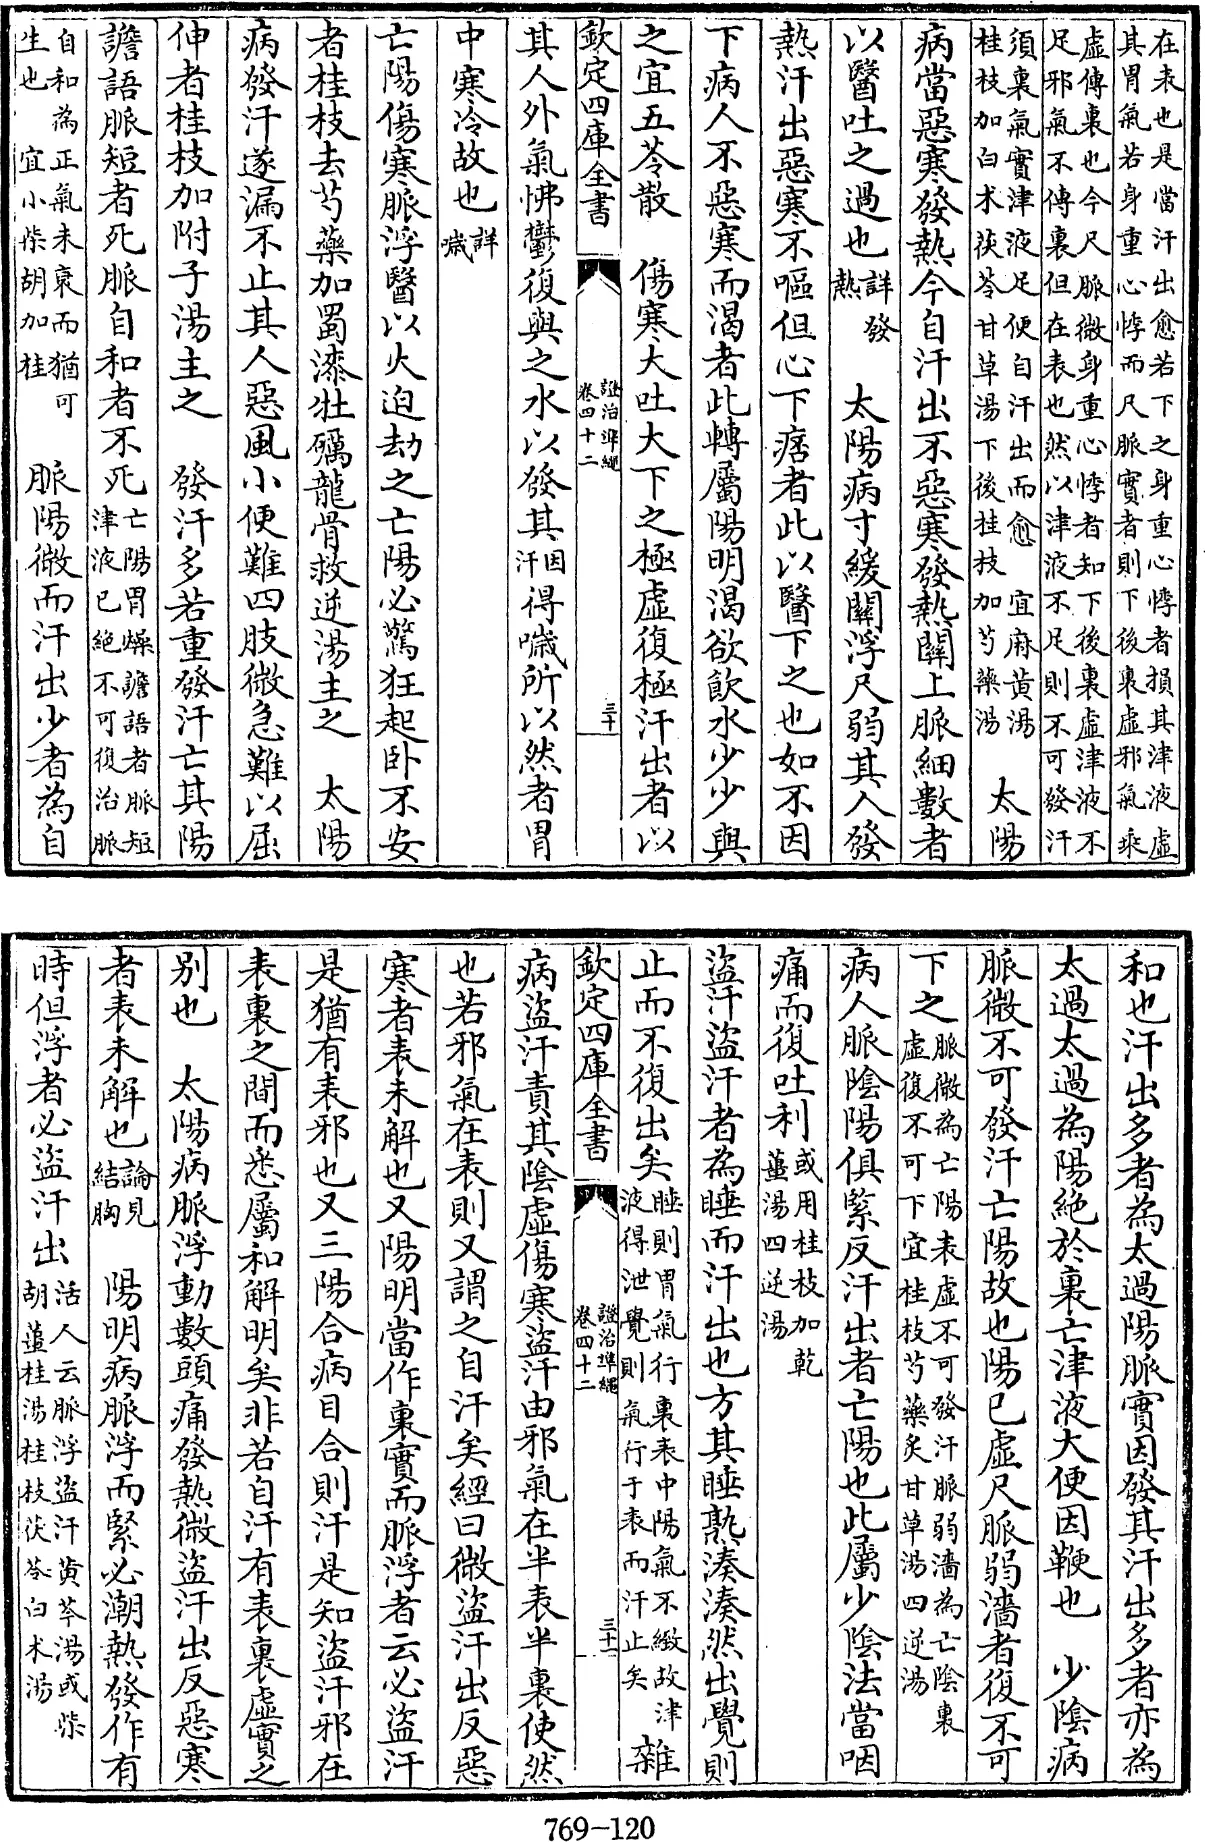 在表也是當汗出愈若下之身重心悸者損其津液虛
其胃氣若身重心悸而尺脈實者則下後裏虛邪氣乘
虛傳裏也今尺脈微身重心悸者知下後裏虛津液不
足邪氣不傳裏但在表也然以津液不足則不可發汗
須裏氣實津液足便自汗出而愈 宜麻黃湯
桂枝加白术茯苓甘草湯下後桂枝加芍藥湯 太陽
病當惡寒發熱今自汗出不惡寒發熱關上脈細數者
以醫吐之過也詳發熱 太陽病寸緩關浮尺弱其人發
熱汗出惡寒不嘔但心下痞者此以醫下之也如不因
下病人不惡寒而渴者此轉屬陽明渴欲飲水少少與
之宜五苓散 傷寒大吐大下之極虛復極汗出者以
欽定四庫全書 證治準繩 卷四十二 三十
其人外氣怫鬱復與之水以發其汗因得噦所以然者胃
中寒冷故也詳噦
亡陽傷寒脈浮醫以火迫劫之亡陽必驚狂起卧不安
者桂枝去芍藥加蜀漆牡礪龍骨救逆湯主之 太陽
病發汗遂漏不止其人惡風小便難四肢微急難以屈
伸者桂枝加附子湯主之 發汗多若重發汗亡其陽
譫語脈短者死脈自和者不死亡陽胃燥譫語者脈短津液已絕不可復治脈
自和為正氣未衰而猶可生也 宜小柴胡加桂 脈陽微而汗出少者為自
和也汗出多者為太過陽脈實因發其汗出多者亦為
太過太過為陽絕於裏亡津液大便因鞕也 少陰病
脈微不可發汗亡陽故也陽已虛尺脈弱濇者復不可
下之脈微為亡陽表虛不可發汗脈弱濇為亡陰裏虛復不可下宜桂枝芍藥炙甘草湯四逆湯
病人脈陰陽俱緊反汗出者亡陽也此屬少陰法當咽
痛而復吐利或用桂枝加乾薑湯四逆湯
盜汗盜汗者為睡而汗出也方其睡熟湊湊然出覺則
止而不復出矣睡則胃氣行裏表中陽氣不緻故津液得泄覺則氣行于表而汗止矣 雜
欽定四庫全書 證治準繩 卷四十二 三十一
病盜汗責其陰虛傷寒盜汗由邪氣在半表半裏使然
也若邪氣在表則又謂之自汗矣經曰微盜汗出反惡
寒者表未解也又陽明當作裏實而脈浮者云必盜汗
是猶有表邪也又三陽合病目合則汗是知盜汗邪在
表裏之間而悉屬和解明矣非若自汗有表裏虛實之
別也 太陽病脈浮動數頭痛發熱微盜汗出反惡寒
者表未解也論見結胸 陽明病脈浮而緊必潮熱發作有
時但浮者必盜汗出活人云脈浮盜汗黃芩湯或柴胡薑桂湯桂枝茯苓白术湯
769-120